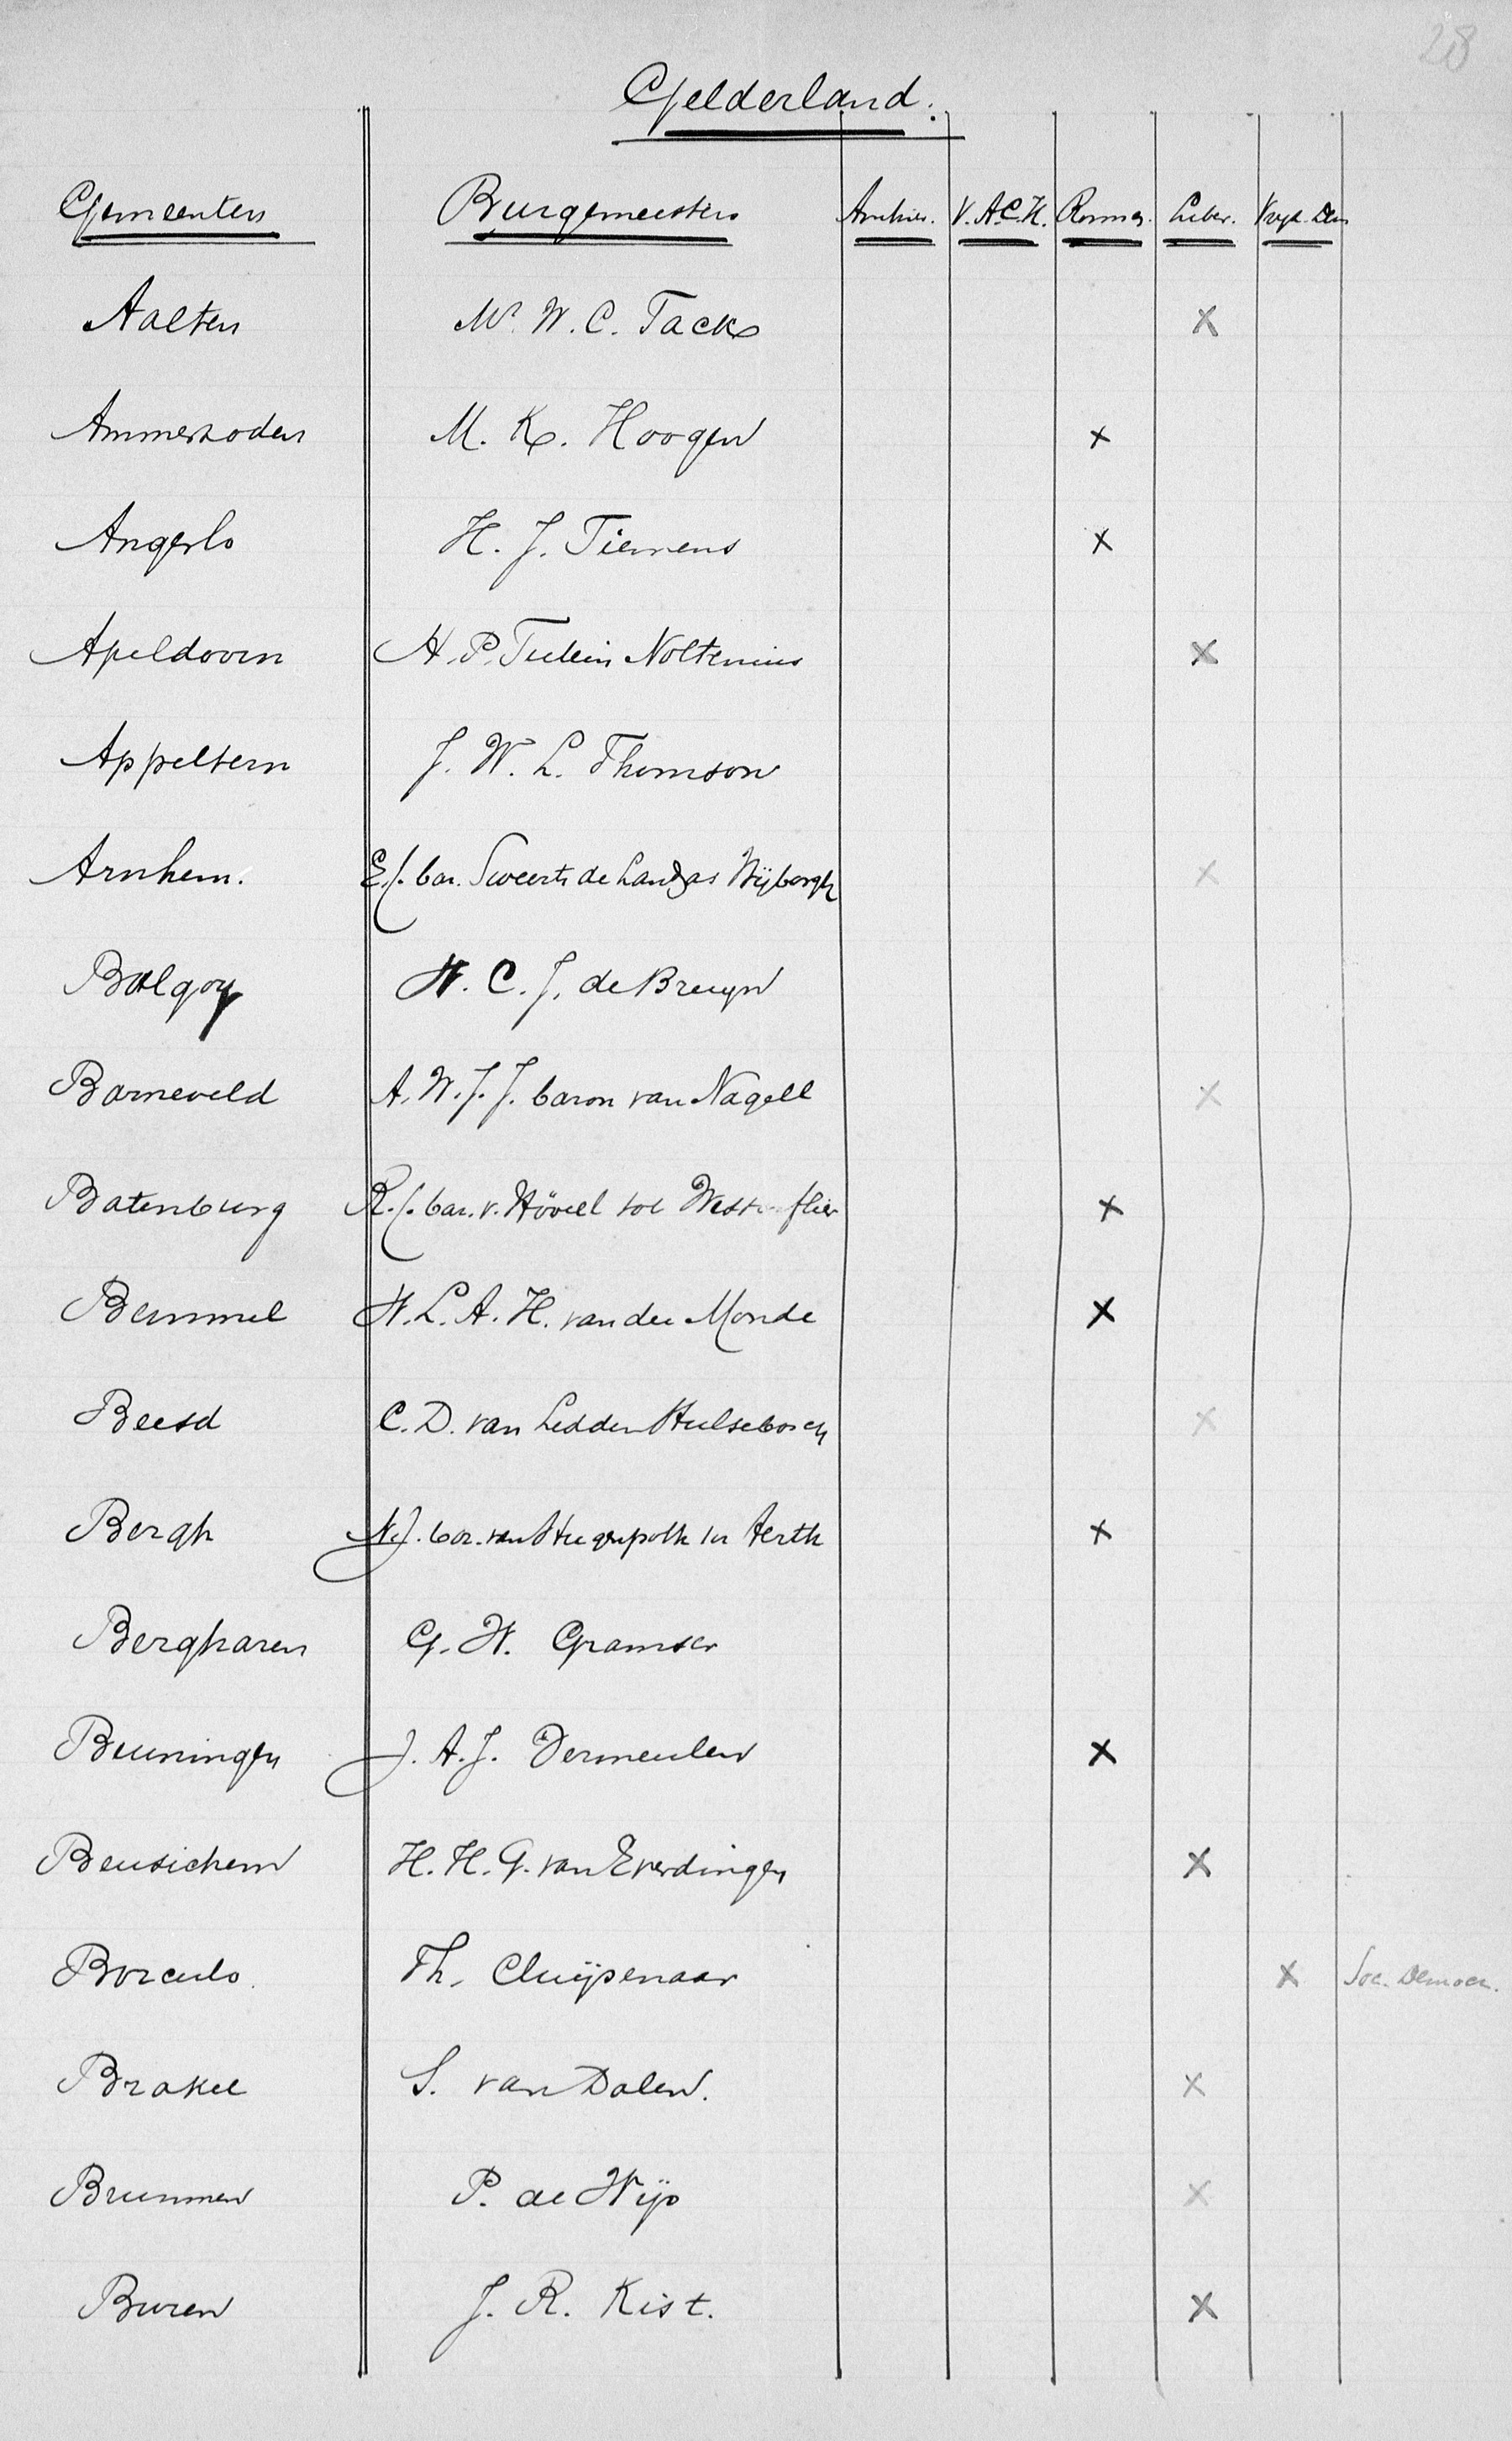 28
Gelderland.
Gemeenten Burgemeesters Antirev. V.A.C.H. Roomsch. Liber. Vrijz. Dem
Aalten Mr. W. C. Tack x
Ammerzoden M. K. Hoogen x
Angerlo H. J. Tiemens x
Apeldoorn H. P. Tutein Noltenius x
Appeltern J. W. L. Thomson
Arnhem. bar. Sweerts de Landas Wijborgh x
Balgoy W. C. J. de Bruyn
Barneveld A. W. J. J. baron van Nagell x
Batenburg R. J. bar. v. Hövell tot Westerflier x
Bemmel W. L. A. H. van de Monde x
Beesd C. D. van Ledden Hulsebosch x
Bergh bar. van Hugenpoth tot Aerth x
Bergharen G. W. Gramser
Beuningen J. A. J. Vermeulen x
Beusichem H. H. G. van Everdingen x
Borculo. Th. Cluijsenaar x Soc. Democr.
Brakel S. van Dalen. x
Brummen P. de Wijs x
Buren J. R. Kist. x